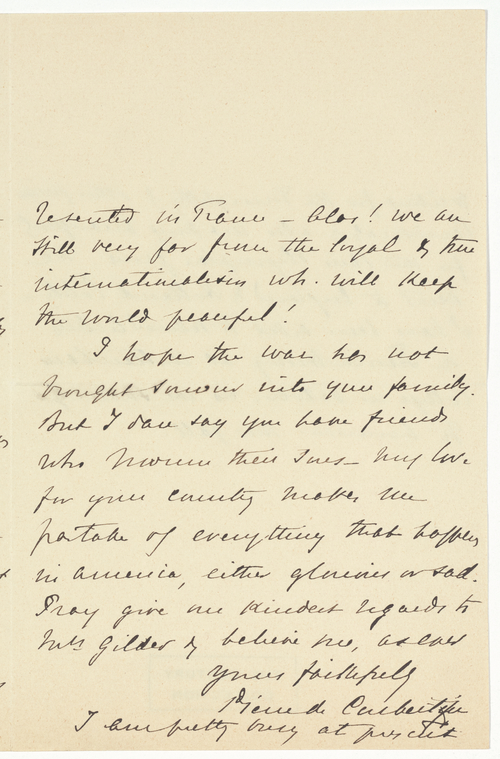 resented in France – Alas! We are
still very far from the loyal & true
internationalism wh. will keep
the world peaceful!
I hope the war has not
brought sorrow into your family.
But I dare say you have friends
who mourn their sons – My love
for your country makes me
partake of everything that happens
in America, either glorious or sad.
Pray give me kindest regards to
Mrs Gilder & believe me, as ever
yours faithfully
Pierre de Coubertin
I am pretty busy at present